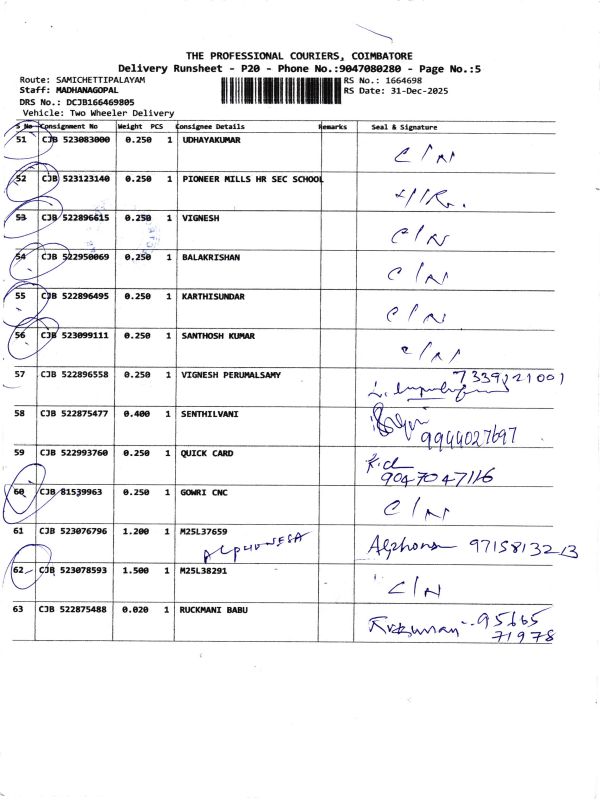 THE PROFESSIONAL COURIERS, COIMBATORE
Delivery Runsheet - P20 - Phone No.:9047080280 - Page No.:5
Route: SAMICHETTIPALAYAM RS No.: 1664698
Staff: MADHANAGOPAL RS Date: 31-Dec-2025
DRS No.: DCJB166469805
Vehicle: Two Wheeler Delivery
S No Consignment No Weight PCS Consignee Details Remarks Seal & Signature
51 CJB 523083000 0.250 1 UDHAYAKUMAR C/N
52 CJB 523123140 0.250 1 PIONEER MILLS HR SEC SCHOOL
53 CJB 522896615 0.250 1 VIGNESH C/N
54 CJB 522950069 0.250 1 BALAKRISHAN C/N
55 CJB 522896495 0.250 1 KARTHISUNDAR C/N
56 CJB 523099111 0.250 1 SANTHOSH KUMAR C/N
57 CJB 522896558 0.250 1 VIGNESH PERUMALSAMY 7339121001
58 CJB 522875477 0.400 1 SENTHILVANI 9944027697
59 CJB 522993760 0.250 1 QUICK CARD 9047047116
60 CJB 81539963 0.250 1 GOWRI CNC C/N
61 CJB 523076796 1.200 1 M25L37659 ALPHONESA Alphonsa 9715813213
62 CJB 523078593 1.500 1 M25L38291 C/N
63 CJB 522875488 0.020 1 RUCKMANI BABU Rukumani 95665
71978